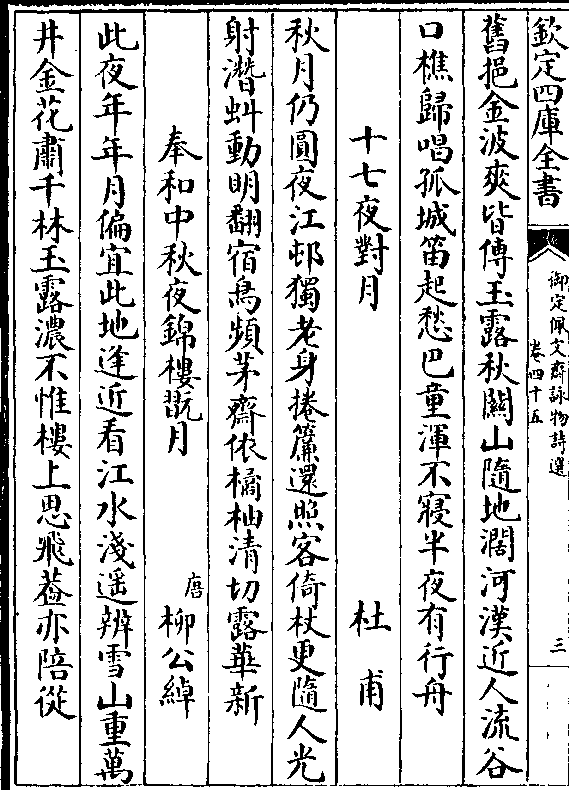 欽定四庫全書
御定佩文齋詠物詩選
卷四十五
三
舊挹金波爽皆傳玉露秋關山隨地濶河漢近人流谷
口樵歸唱孤城笛起愁巴童渾不寢半夜有行舟
十七夜對月 杜甫
秋月仍圓夜江邨獨老身捲簾還照客倚杖更隨人光
射潛虯動明翻宿鳥頻茅齋依橘柚清切露華新
奉和中秋夜錦樓翫月 唐柳公綽
此夜年年月偏宜此地逢近看江水淺遥辨雪山重萬
井金花肅千林玉露濃不惟樓上思飛葢亦陪從